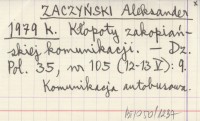 ZACZYŃSKI Aleksander
1979 K. Kłopoty zakopiań-
skiej komunikacji. — Dz.
Pol. 35, nr 105 (12-13 V): 9.
Komunikacja autobusowa.